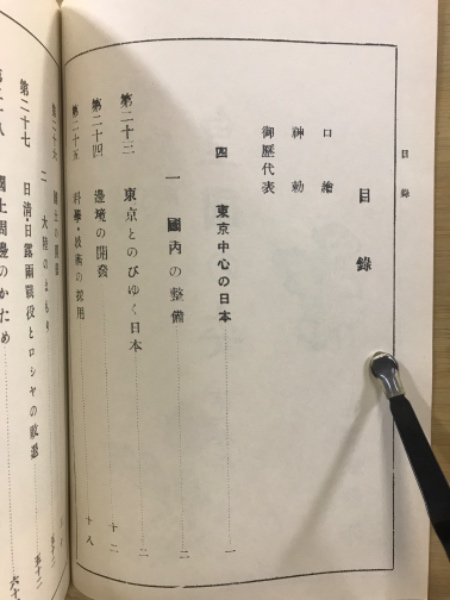 目録
目錄
口繪
神勅
御歷代表
四 東京中心の日本 一
一 國內の整備 二
第二十三 東京とのびゆく日本 二
第二十四 邊境の開發 十二
第二十五 科學・技術の採用 十八
第二十六
二 大陸のまもり
第二十七 日淸・日露兩戰役とロシヤの敗退
第二十八 國土周邊のかため 六十